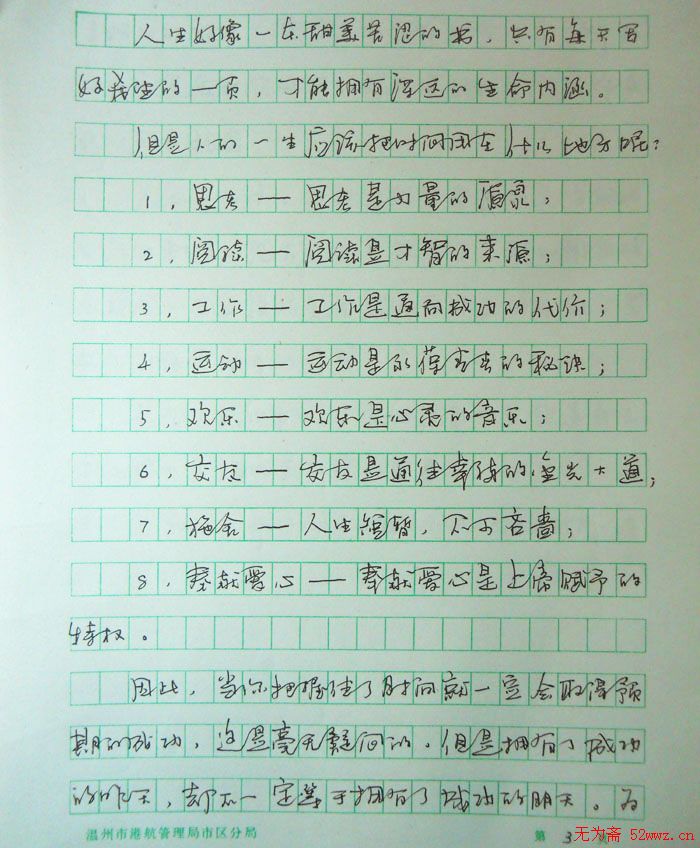 人生好像一本甜美苦涩的书，只有每天写
好我生的一页，才能拥有深远的生命内涵。
但是人的一生应该把时间用在什么地方呢？
1，思考——思考是力量的源泉；
2，阅读——阅读是才智的来源；
3，工作——工作是通向成功的代价；
4，运动——运动是永葆青春的秘诀；
5，欢乐——欢乐是心灵的音乐；
6，交友——交友是通往幸福的金光大道；
7，施舍——人生短暂，不可吝啬；
8，奉献爱心——奉献爱心是上帝赋予的
特权。
因此，当你把握住了时间就一定会取得预
期的成功，这是毫无疑问的。但是拥有了成功
的昨天，却不一定等于拥有了成功的明天。为
温州市港航管理局市区分局
第 3
无为斋 52wwz.cn